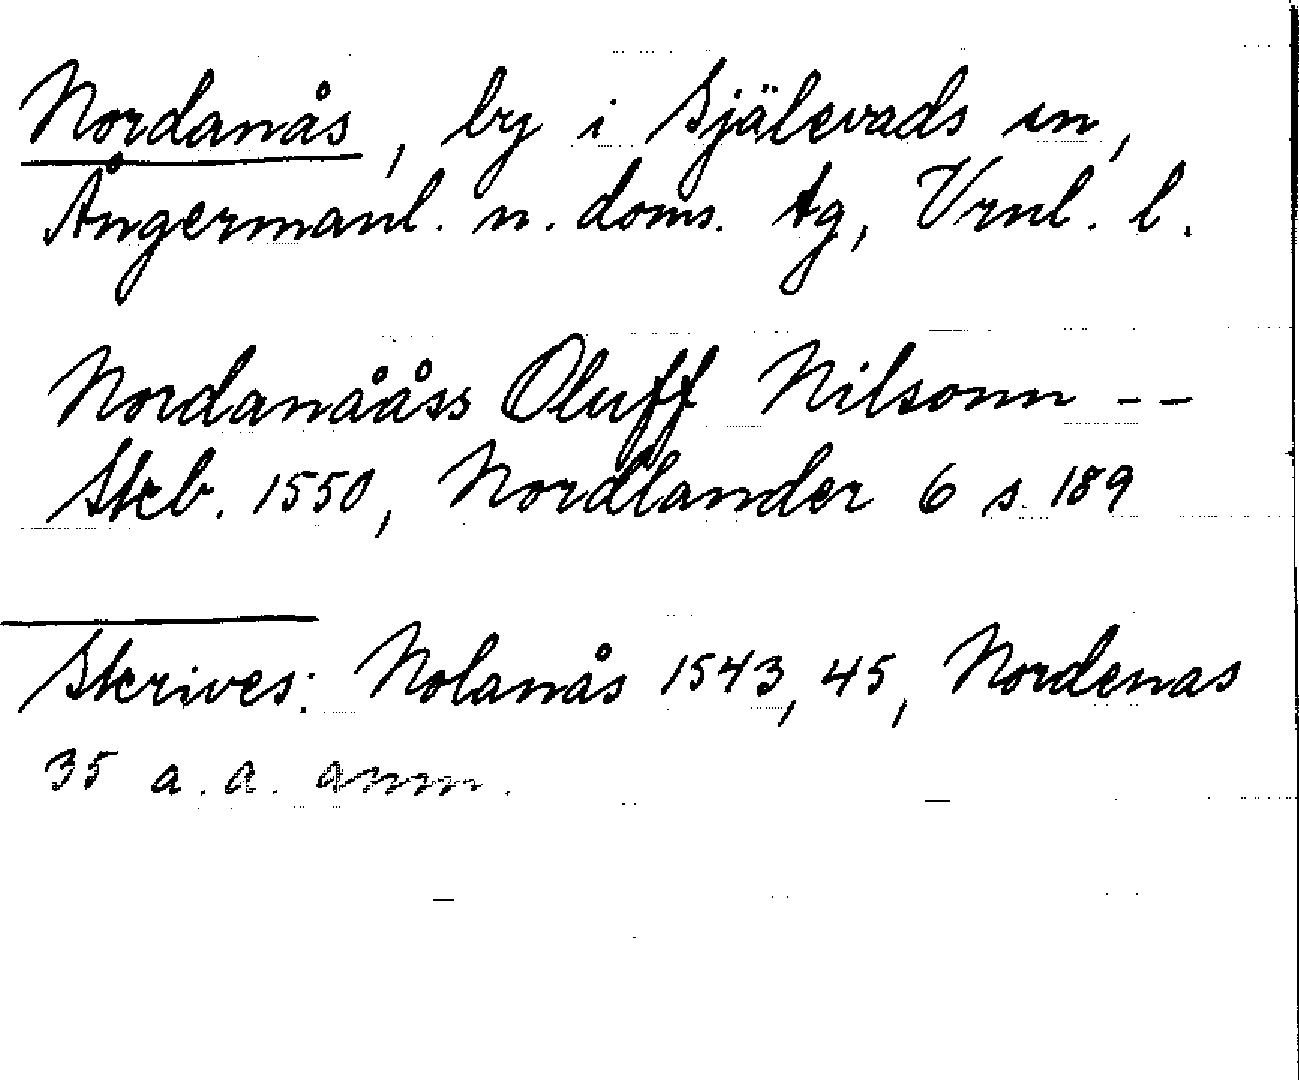 Nordanås, by i Själevads sn,
Ångermanl. n. doms. tg, Vrnl. l.
Nordanååss Oluff Nilsonn --
Skb. 1550, Nordlander 6 s. 189
Skrives: Nolanås 1543, 45, Nordenas
35 a. a. anm.